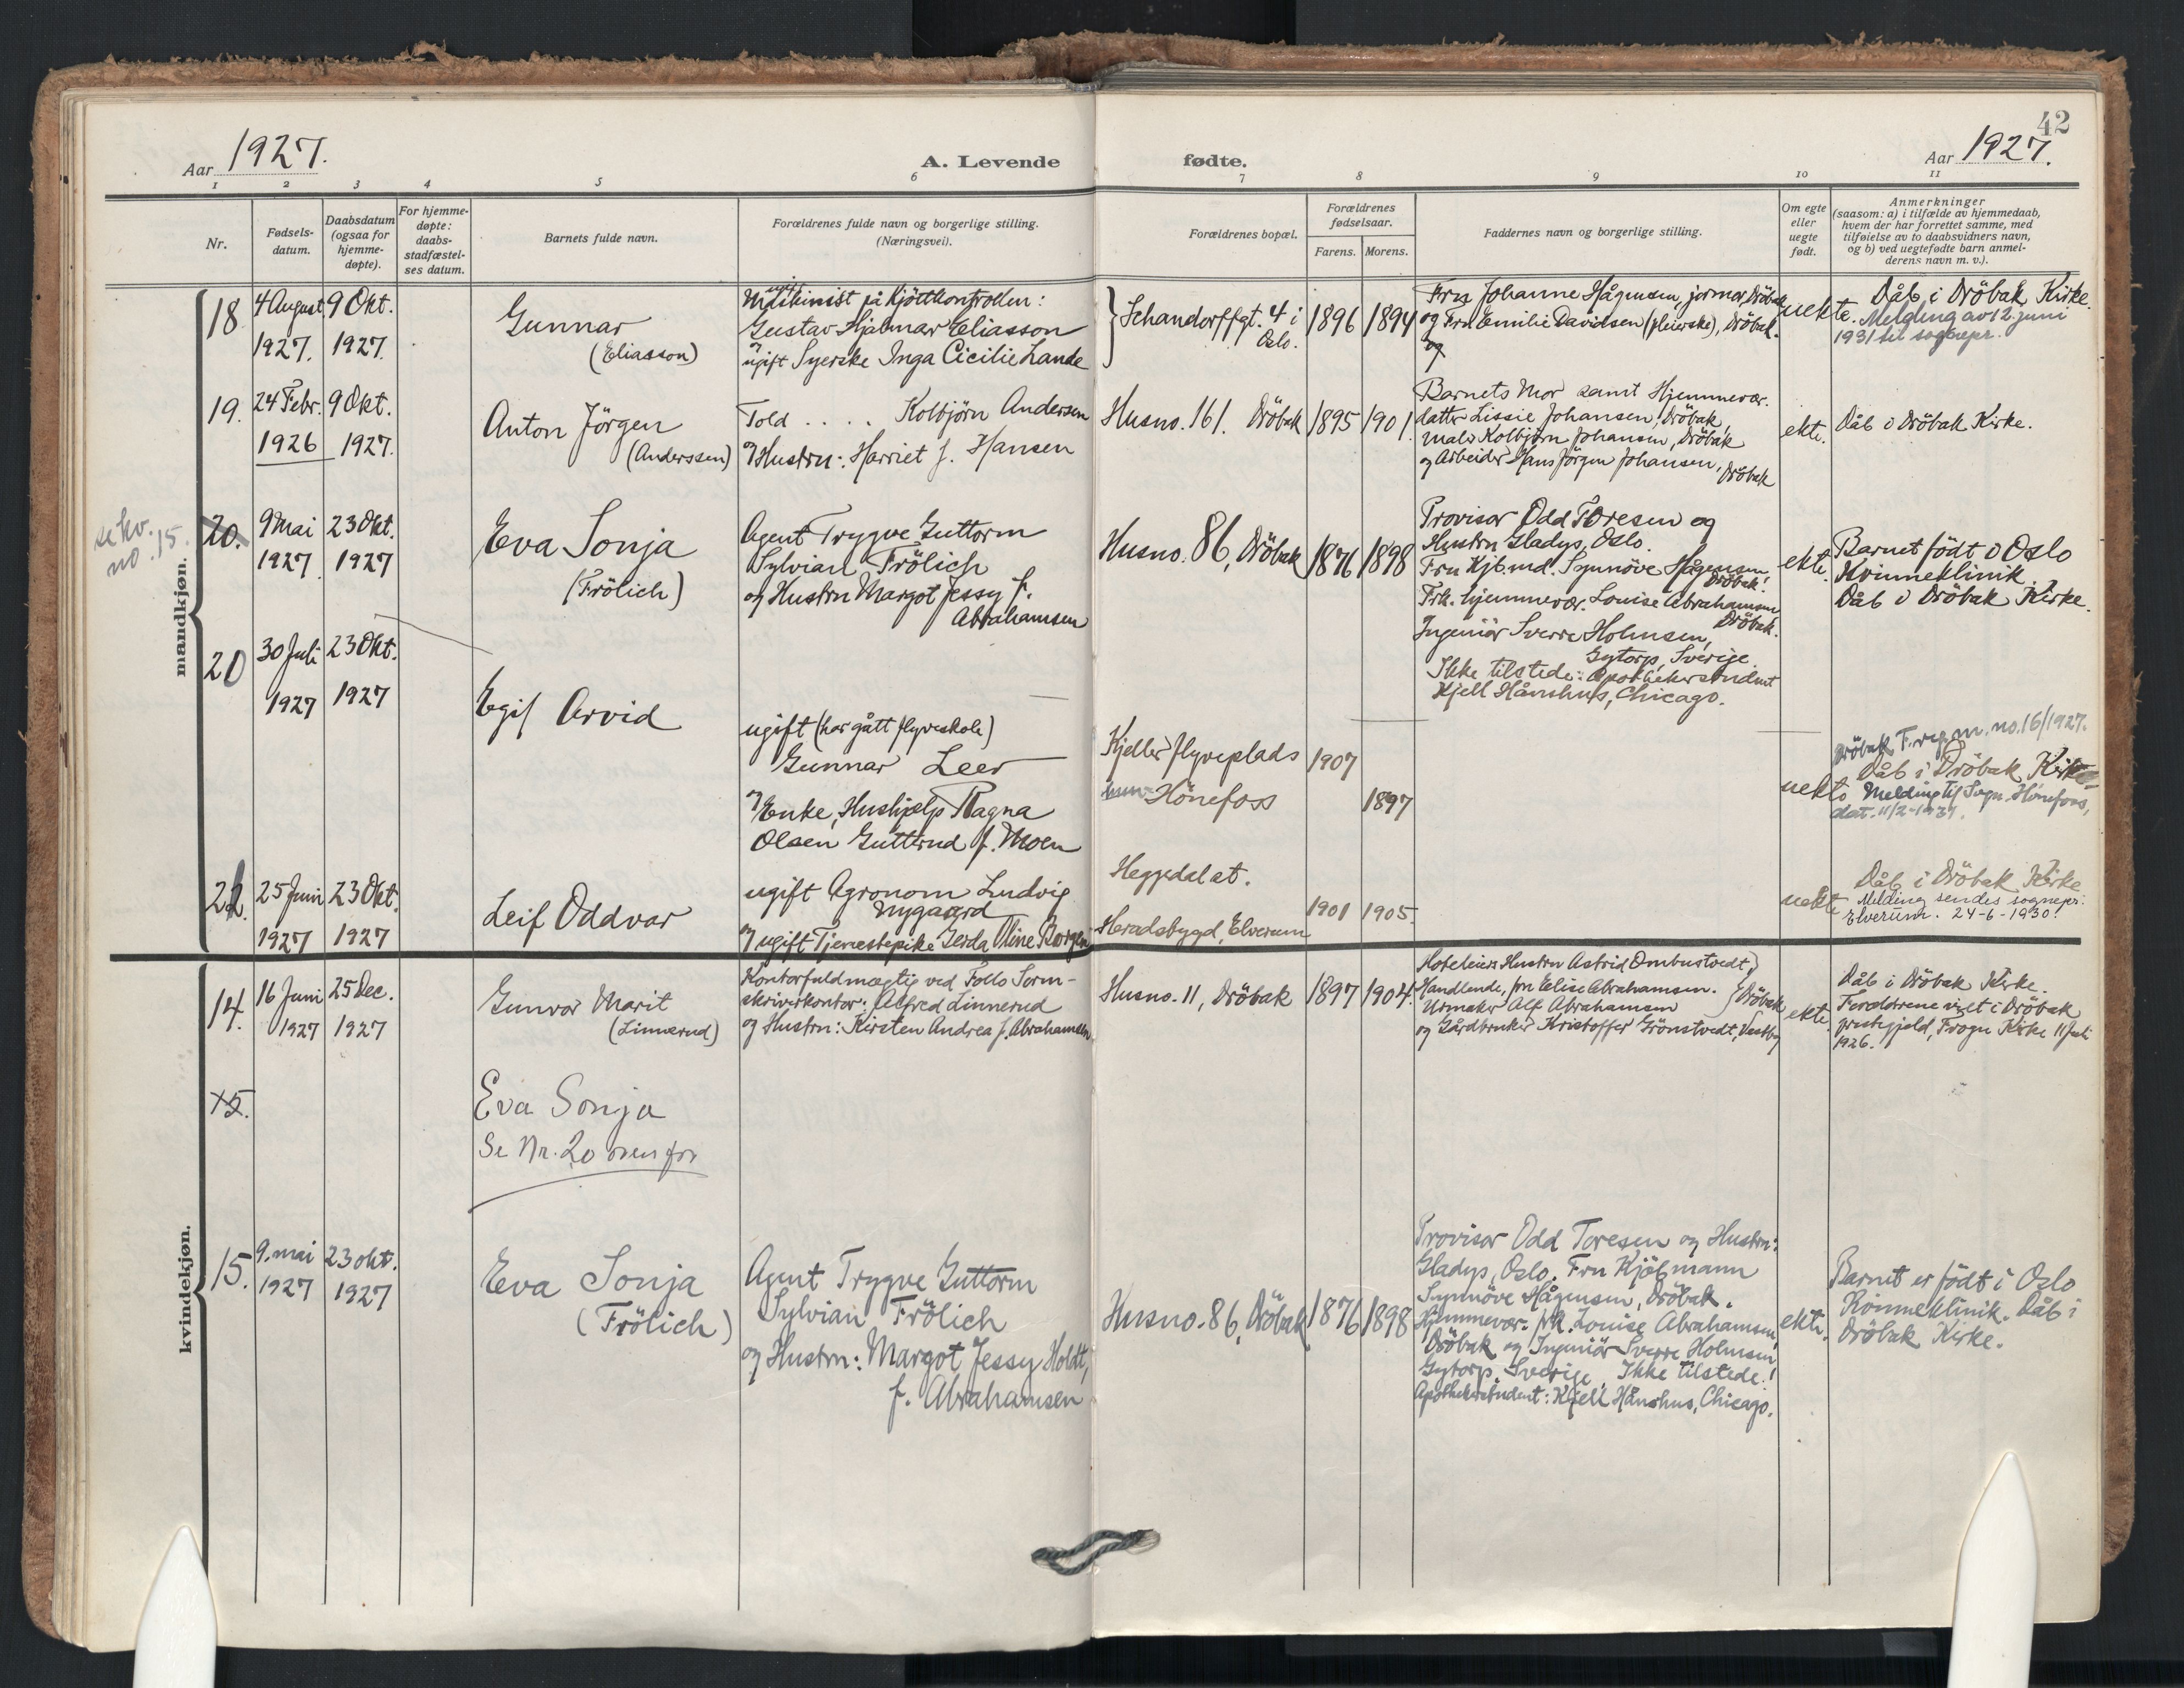 42
Aar 1927.
A. Levende
fødte.
Aar 1927.
1 2 3 4 5 6 7 8 9 10 11
Nr.
Fødsels-
datum.
Daabsdatum
(ogsaa for
hjemme-
døpte).
For hjemme-
døpte:
daabs-
stadfæstel-
ses datum.
Barnets fulde navn.
Forældrenes fulde navn og borgerlige stilling.
(Næringsvei).
Forældrenes bopæl.
Forældrenes
fødselsaar.
Farens. Morens.
Faddernes navn og borgerlige stilling.
Om egte
eller
uegte
født.
Anmerkninger
(saasom: a) i tilfælde av hjemmedaab,
hvem der har forrettet samme, med
tilføielse av to daabsvidners navn,
og b) ved uegtefødte barn anmel-
derens navn m. v.).
mandkjøn.
18
4 August
1927.
9 Okt.
1927.
Gunnar
(Eliasson)
ugift
Maskinist på Kjöttkontrollen:
Gustav Hjalmar Eliasson
og
ugift Syerske Inga Cicilie Lande
Schandorffgt. 4 i
Oslo.
1896
1894
Fru Johanne Hågensen, jormor, Dröbak
og Fru Emilie Davidsen (pleierske), Dröbak.
og
uekte.
Dåb i Dröbak Kirke.
Melding av 12. juni
1931 til sognepr.
19.
24 Febr.
1926
9 Okt.
1927.
Anton Jörgen
(Anderssen)
Told . . . . Kolbjörn Andersen
og Hustru: Harriet f. Hansen
Husno. 161. Dröbak
1895
1901.
Barnets Mor samt Hjemmevær.
datter Lissie Johansen, Dröbak,
Maler Kolbjörn Johansen, Dröbak
og Arbeider Hans Jörgen Johansen,
Dröbak
ekte.
Dåb i Dröbak Kirke.
se kv.
no. 15.
20.
9 Mai
1927
23 Okt.
1927
Eva Sonja
(Frölich)
Agent Trygve Guttorm
Sylvian Frölich
og Hustru Margot Jessy f.
Abrahamsen
Husno. 86, Dröbak
1876
1898
Provisor Odd Toresen og
Hustru Gladys, Oslo.
Fru Kjöbmd. Synnöve Hågensen
Dröbak.
Frk. hjemmevær. Louise Abrahamsen
Dröbak.
Ingeniör Sverre Holmsen,
Gytorp, Sverige
Ikke tilstede: Apothekerstudent
Kjell Hånshus, Chicago.
ekte.
Barnet födt i Oslo
Kvinneklinik.
Dåb i Dröbak Kirke.
20
30 Juli
1927
23 Okt.
1927
Egil Arvid
ugift (har gått flyveskole)
Gunnar Leer
og Enke, Hushjelp Ragna
Olsen Gutterud f. Moen
Kjeller flyveplads
hun Hönefoss
1907
1897
uekte
Dröbak F.reg. m. no. 16/1927.
Dåb i Dröbak Kirke
Melding til Sogn. Hönefoss,
dat. 11/2-1937.
21.
25 Juni
1927
23 Okt.
1927
Leif Oddvar
ugift Agronom Ludvig
Nygaard
og ugift Tjenestepike Gerda Oline Borgen
Heggedal st.
Heradsbygd, Elverum
1901
1905
uekte
Dåb i Dröbak Kirke.
Melding sendes sognepr.
Elverum. 24-6-1930.
kvindekjøn.
14.
16 Juni
1927
25 Dec.
1927
Gunvor Marit
(Linnerud)
Kontorfuldmægtig ved Follo Soren-
skriverkontor: Alfred Linnerud
og Hustru: Kirsten Andrea f. Abrahamsen.
Husno. 11, Dröbak
1897
1904.
Hoteleiers Hustru Astrid Ombustvedt,
Handlende, fru Elise Abrahamsen.
Urmaker Alf Abrahamsen
Dröbak
og Gårdbruker Kristoffer Grönstvedt, Vestby
ekte
Dåb i Dröbak Kirke.
Foreldrene viet i Dröbak
prestegjeld, Frogn Kirke 11 Juli
1926.
15.
Eva Sonja
Se Nr. 20 ovenfor
15.
9. mai
1927
23 okt.
1927
Eva Sonja
(Frölich)
Agent Trygve Guttorm
Sylvian Frölich
og Hustru: Margot Jessy Holdt,
f. Abrahamsen
Husno. 86, Dröbak
1876
1898
Provisor Odd Toresen og Hustru:
Gladys, Oslo. Fru Kjöbmann
Synnöve Hågensen, Dröbak.
Hjemmevær. frk. Louise Abrahamsen,
Dröbak og Ingeniör Sverre Holmsen
Gytorp, Sverige. Ikke tilstede:
Apothekerstudent: Kjell Hånshus, Chicago.
ekte.
Barnet er födt i Oslo
Kvinneklinik. Dåb i
Dröbak Kirke.